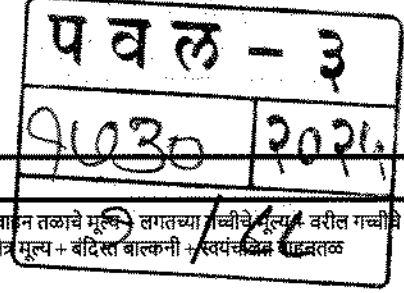 पवल - ३
१७३० २०२५
वाहन तळाचे मूल्य + लगतच्या गच्चीचे मूल्य + वरील गच्चीचे
मूल्य + बंदिस्त बाल्कनी + स्वयंचलित वाहनतळ